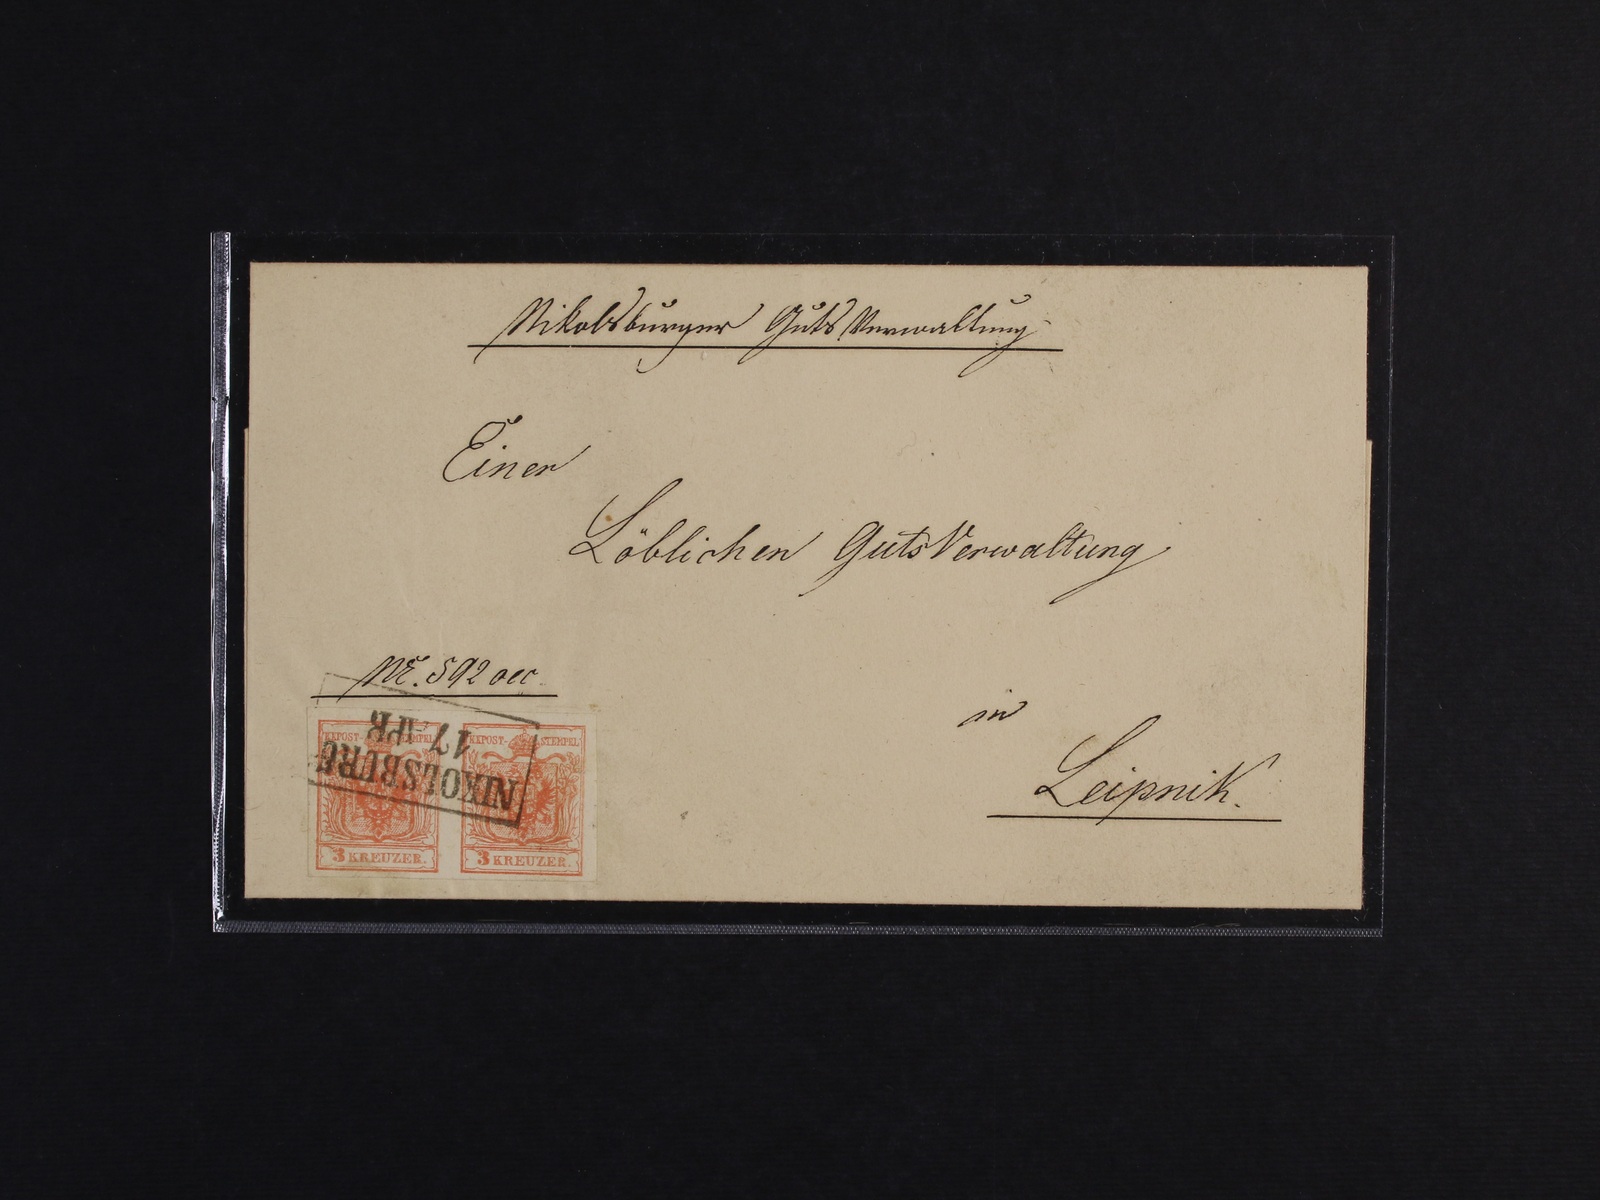 Nikolsburger Guts Verwaltung
Einer
Löblichen GutsVerwaltung
in
Leipnik.
Nr. 592 oec.
NIKOLSBURG
17 APR.
KKPOST-STEMPEL
KKPOST-STEMPEL
3 KREUZER.
3 KREUZER.